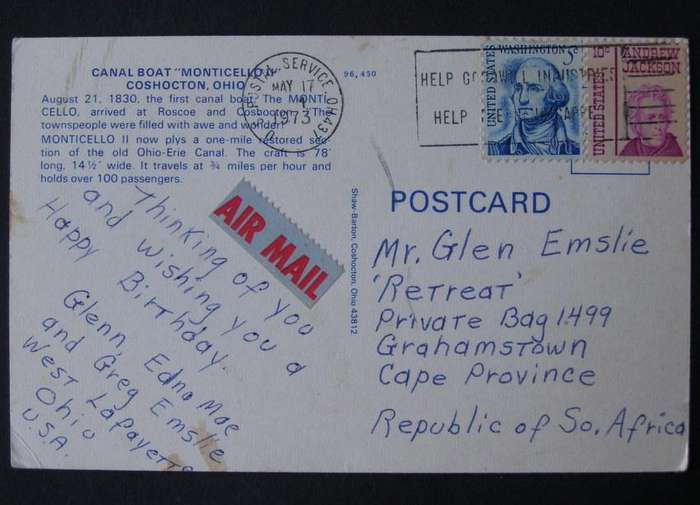 CANAL BOAT "MONTICELLO II"
COSHOCTON, OHIO
August 21, 1830, the first canal boat, The MONTI-
CELLO, arrived at Roscoe and Coshocton. The
townspeople were filled with awe and wonder!
MONTICELLO II now plys a one-mile restored sec-
tion of the old Ohio-Erie Canal. The craft is 78'
long, 14½' wide. It travels at ¾ miles per hour and
holds over 100 passengers.
96,450
U.S. POSTAL SERVICE OH
MAY 17
1973
HELP GOODWILL INDUSTRIES
HELP THE
WASHINGTON 5c
UNITED STATES
10c ANDREW
JACKSON
UNITED STATES
AIR MAIL
Shaw-Barton, Coshocton, Ohio 43812
Thinking of you
and wishing you a
Happy Birthday.
Glenn, Edna Mae
and Greg Emslie
West Lafayette
Ohio
U.S.A.
POSTCARD
Mr. Glen Emslie
'Retreat'
Private Bag 1499
Grahamstown
Cape Province
Republic of So. Africa